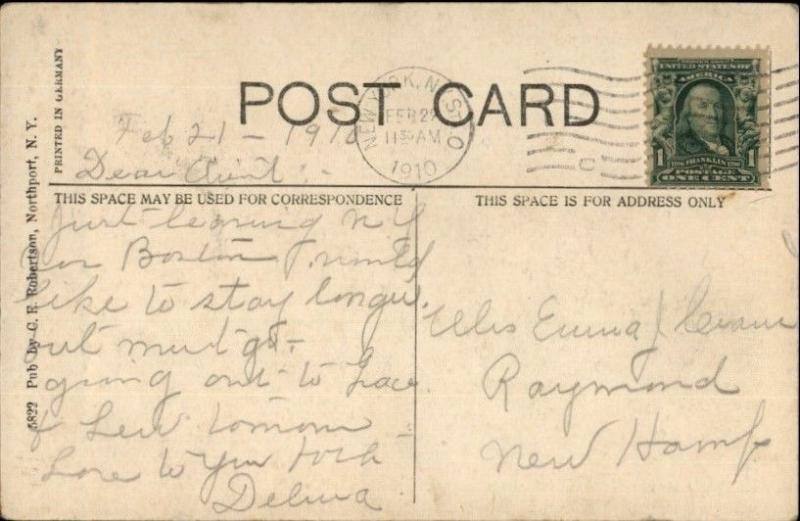 POST CARD
NEW YORK, N.Y. STA. O
FEB 22
11 30 AM
1910
C
UNITED STATES OF
AMERICA
1 FRANKLIN 1
POSTAGE
ONE CENT
Feb 21 - 1910
Dear Aunt : -
THIS SPACE MAY BE USED FOR CORRESPONDENCE
THIS SPACE IS FOR ADDRESS ONLY
Just leaving N Y
for Boston I would
like to stay longer
but must go -
going out to
& Lew
Love to you both
Delma
Emma
Raymond
New Hamp
4822 Pub by C. E. Robertson, Northport, N. Y.
PRINTED IN GERMANY